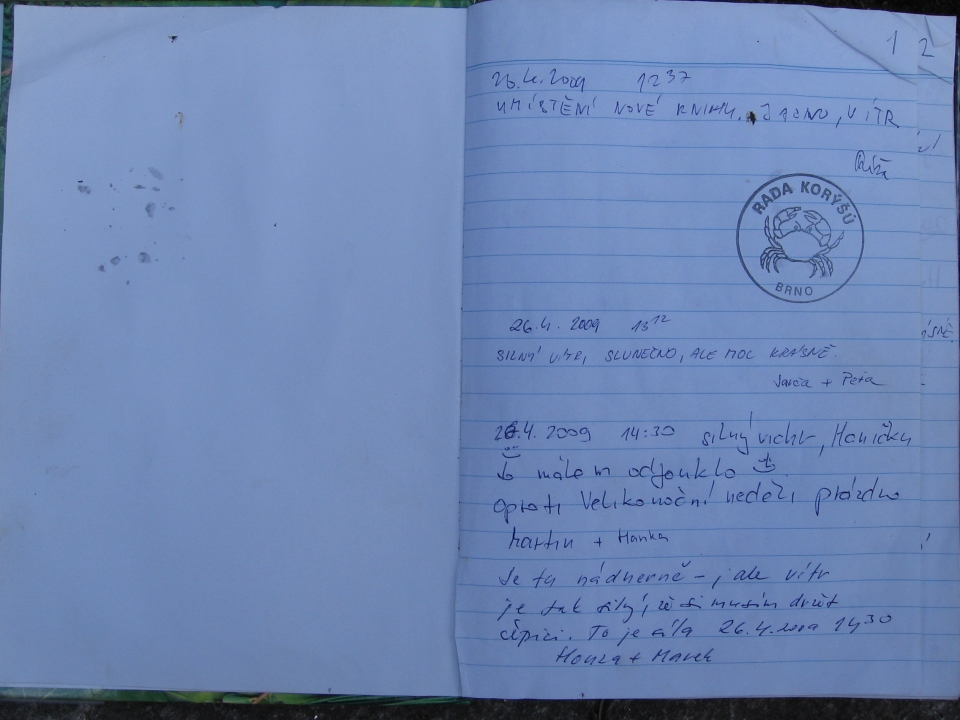 1 2
26.4.2009 12 37
UMÍSTĚNÍ NOVÉ KNIHY. JASNO, VÍTR
Ríša
RADA KORÝŠŮ
BRNO
26.4. 2009 13 12
SILNÝ VÍTR, SLUNEČNO, ALE MOC KRÁSNĚ.
+ Peťa
26.4. 2009 14:30 silný vichr, Haničku
málem odfouklo
oproti Velikonoční neděli prázdno
Martin + Hanka
Je tu nádherně – , ale vítr
je tak silný, že si musím držet
čepici. To je síla 26.4.2009 14 30
Honza + Marek